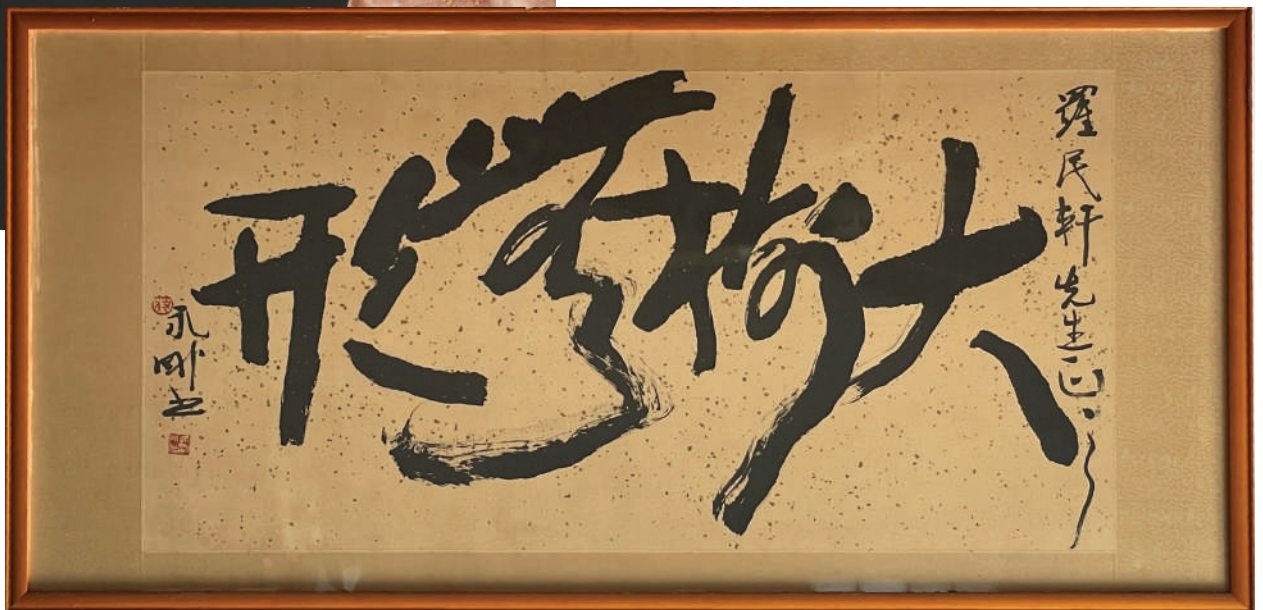 羅民軒先生正之
大象無形
永剛书